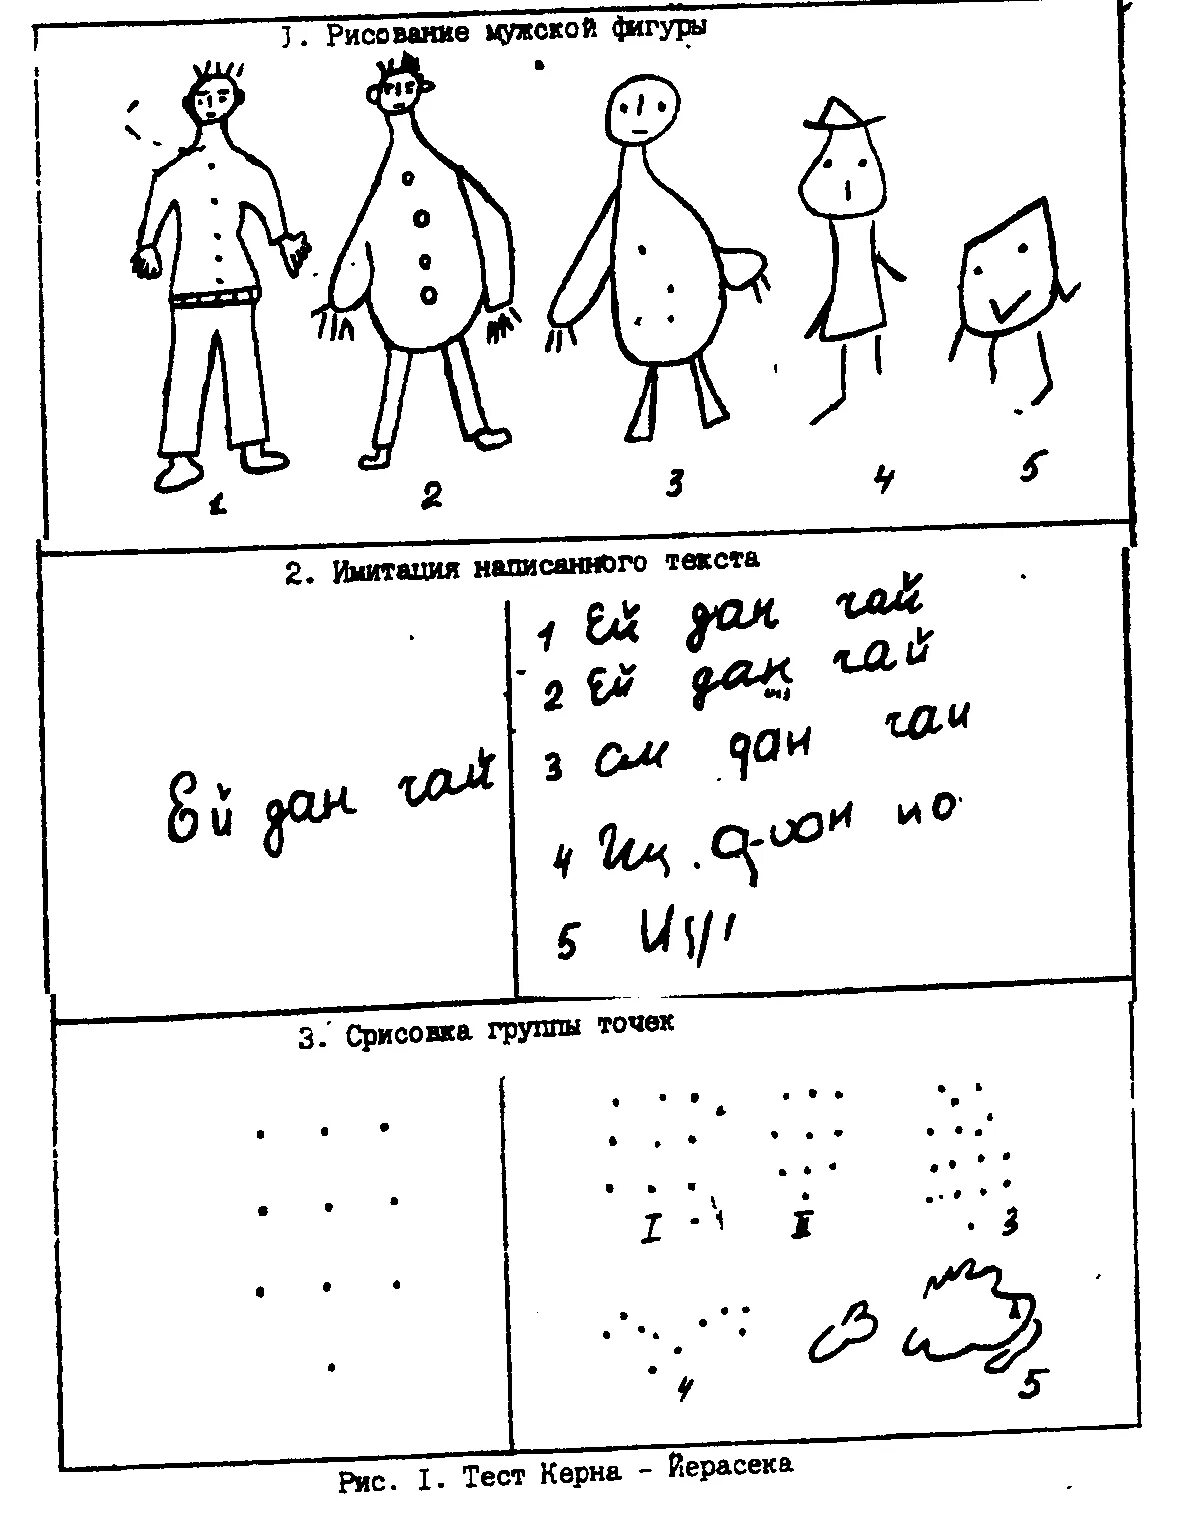 1. Рисование мужской фигуры
1 2 3 4 5
2. Имитация написанного текста
Ей дан чай
1 Ей дан чай
2 Ей дан чай
3 см дан чаи
4 Иц. но
5
3. Срисовка группы точек
I II 3
4 5
Рис. I. Тест Керна - Йерасека